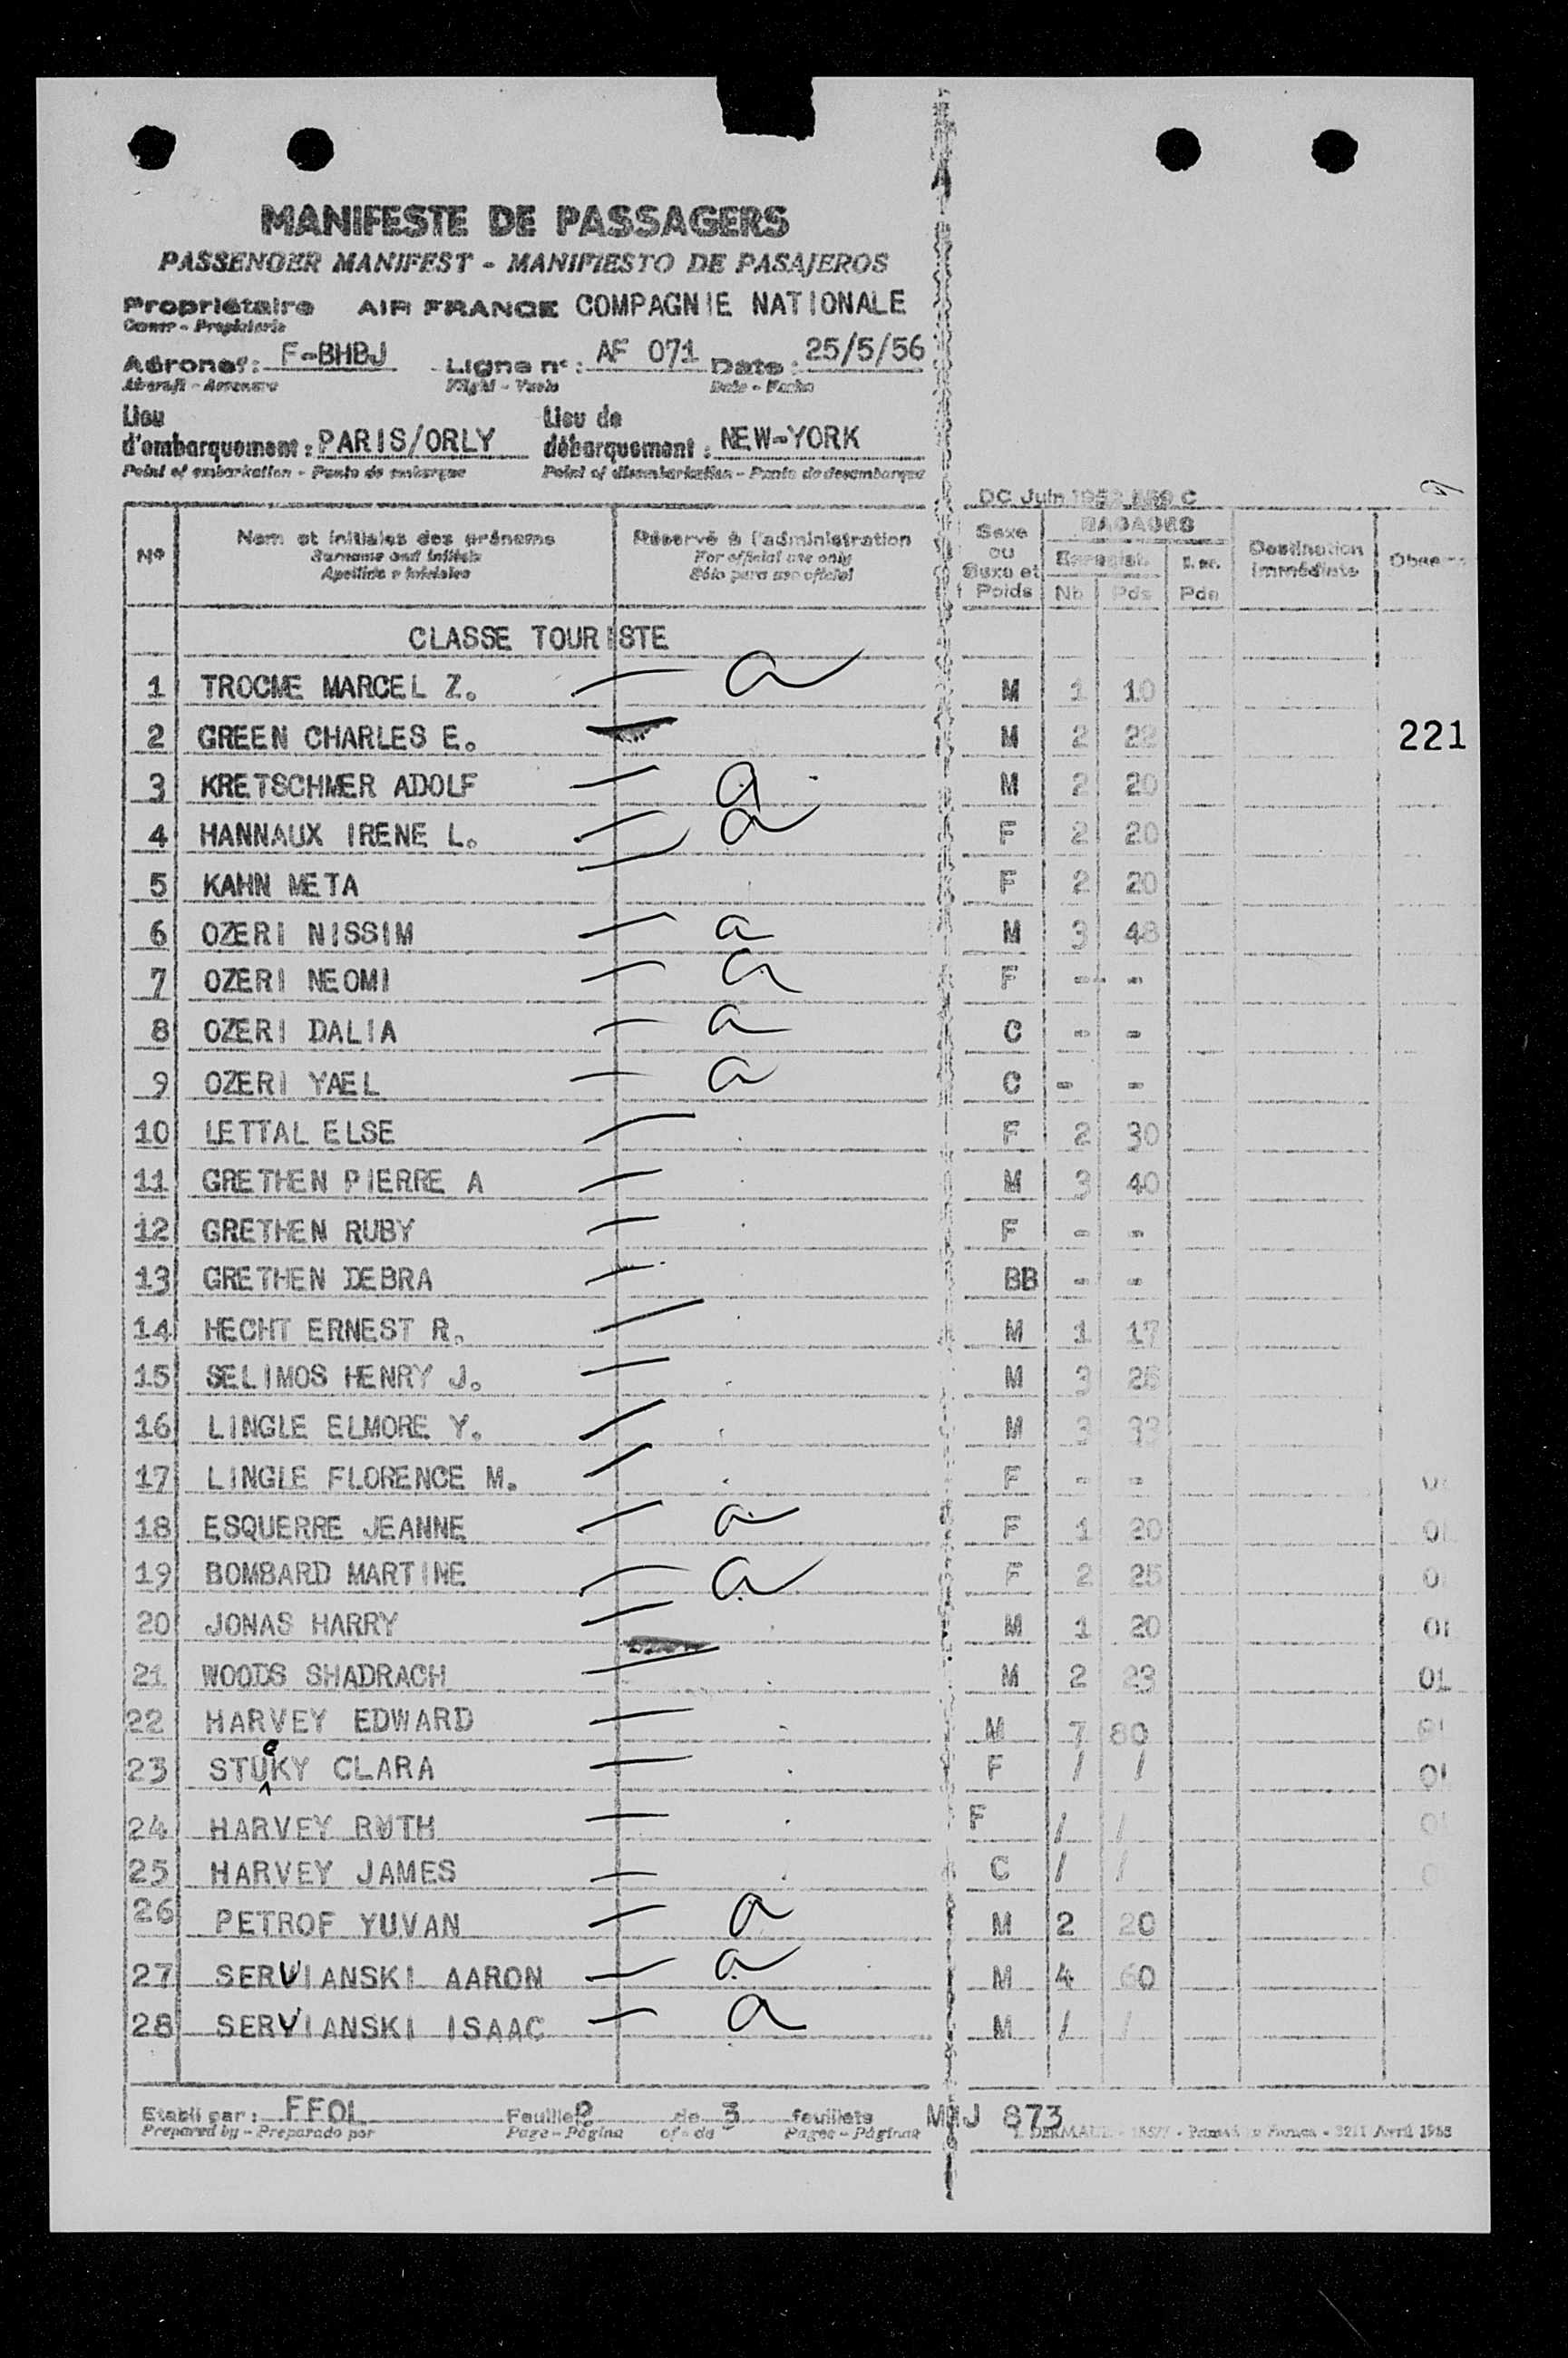 MANIFESTE DE PASSAGERS
PASSENGER MANIFEST - MANIFIESTO DE PASAJEROS
Propriétaire AIR FRANCE COMPAGNIE NATIONALE
Owner - Propietario
Aéronef : F-BHBJ Ligne n° : AF 071 Date : 25/5/56
Aircraft - Aeronave Flight - Vuelo Date - Fecha
Lieu d'embarquement : PARIS/ORLY Lieu de débarquement : NEW-YORK
Point of embarkation - Punto de embarque Point of disembarkation - Punto de desembarque
DC Juin 1952
N° Nom et initiales des prénoms Réservé à l'administration Sexe ou Sexe et Poids BAGAGES Destination immédiate
Surname and initials For official use only Enregist.
Apellido e iniciales Sólo para uso oficial Nb Pds Pds
CLASSE TOURISTE
1 TROCME MARCEL Z. — a M 1 10
2 GREEN CHARLES E. M 2 22 221
3 KRETSCHMER ADOLF — a M 2 20
4 HANNAUX IRENE L. — a F 2 20
5 KAHN META — F 2 20
6 OZERI NISSIM — a M 3 48
7 OZERI NEOMI — a F - -
8 OZERI DALIA — a C - -
9 OZERI YAEL — a C - -
10 LETTAL ELSE — F 2 30
11 GRETHEN PIERRE A — M 3 40
12 GRETHEN RUBY — F - -
13 GRETHEN DEBRA — BB - -
14 HECHT ERNEST R. — M 1 17
15 SELIMOS HENRY J. — M 3
16 LINGLE ELMORE Y. — M 3
17 LINGLE FLORENCE M. — F - -
18 ESQUERRE JEANNE — a F 1 20
19 BOMBARD MARTINE — a F 2 25
20 JONAS HARRY — M 1 20
21 WOODS SHADRACH — M 2 23 OL
22 HARVEY EDWARD — M 7 80
23 STUCKY CLARA — F / /
24 HARVEY RUTH — F / /
25 HARVEY JAMES — C / /
26 PETROF YUVAN — a M 2 20
27 SERVIANSKI AARON — a M 4 60
28 SERVIANSKI ISAAC — a M / /
Etabli par : FFOL Feuille 2 de 3 feuillets M J 873
Prepared by - Preparado por Page - Página of - de Pages - Páginas